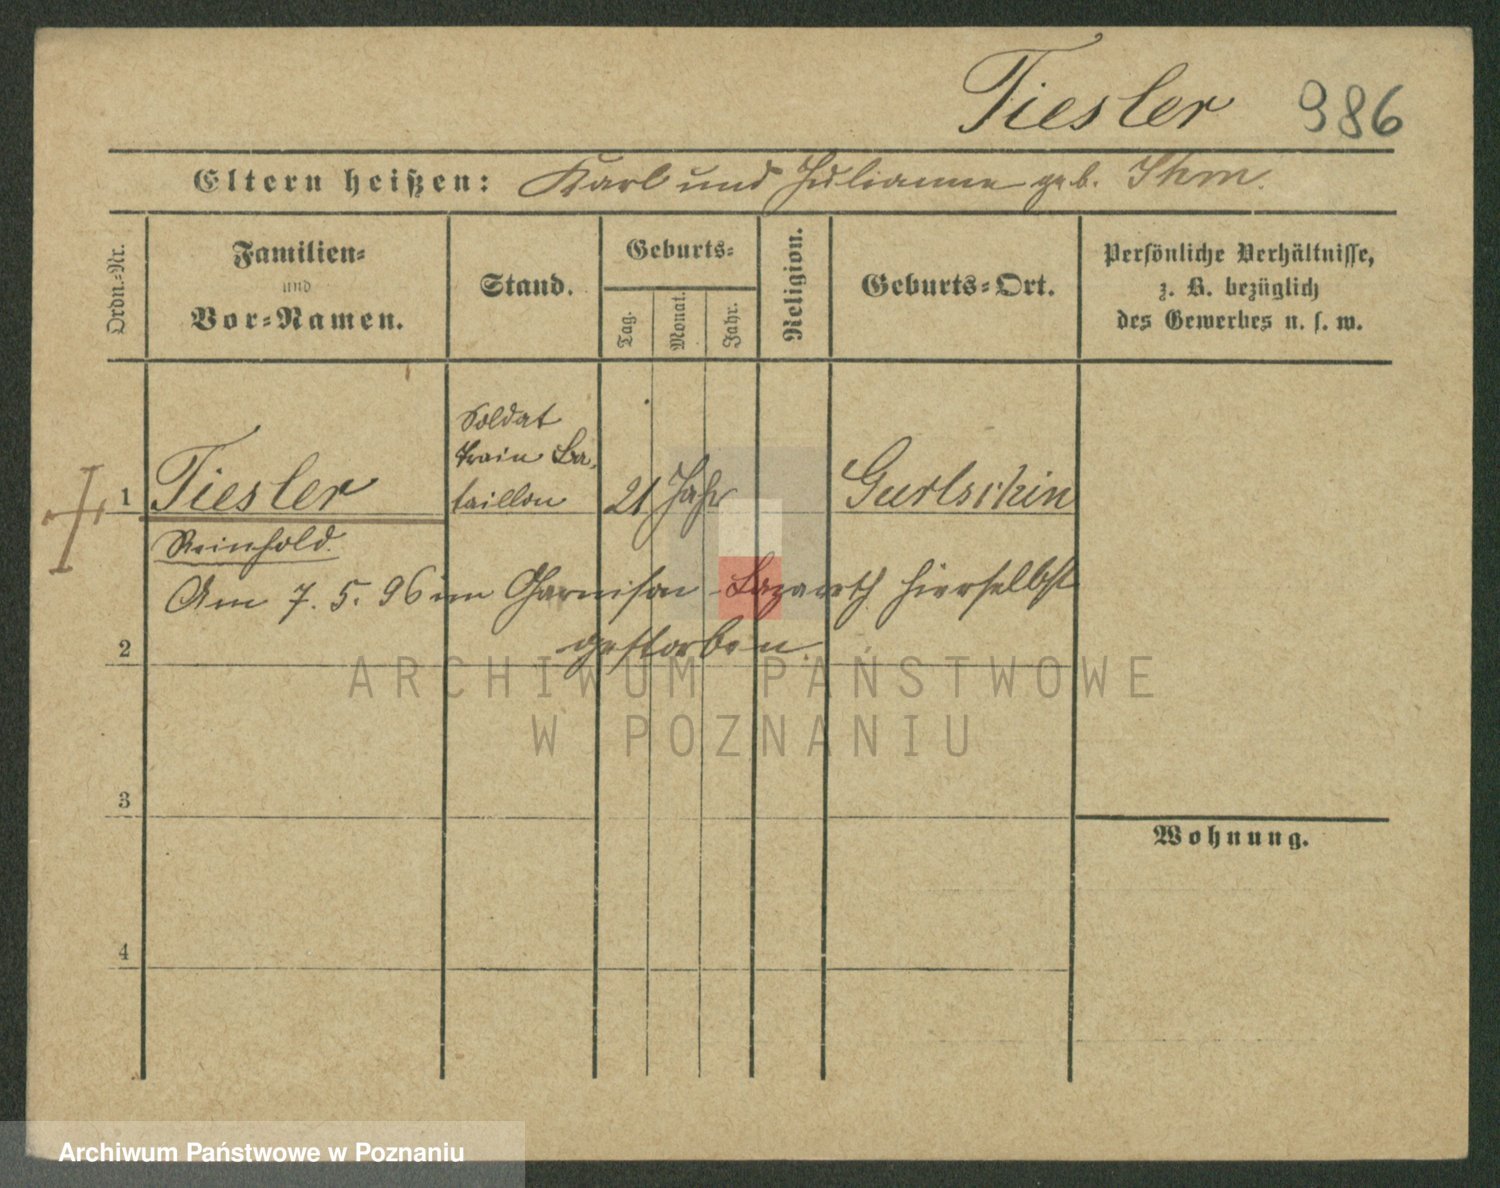 Tiesler 986
Eltern heißen: Karl und Julianne geb. Ihm.
Ordn.-Nr.
Familien-
und
Vor-Namen.
Stand.
Geburts-
Tag.
Monat.
Jahr.
Religion.
Geburts-Ort.
Persönliche Verhältnisse,
z. B. bezüglich
des Gewerbes u. s. w.
Soldat
Train Ba-
1 Tiesler taillon 21 Jahr
Reinhold.
Am 7. 5. 96 im Garnison-Lazareth hierselbst
gestorben.
2
3
4
Wohnung.
ARCHIWUM PAŃSTWOWE
W POZNANIU
Archiwum Państwowe w Poznaniu